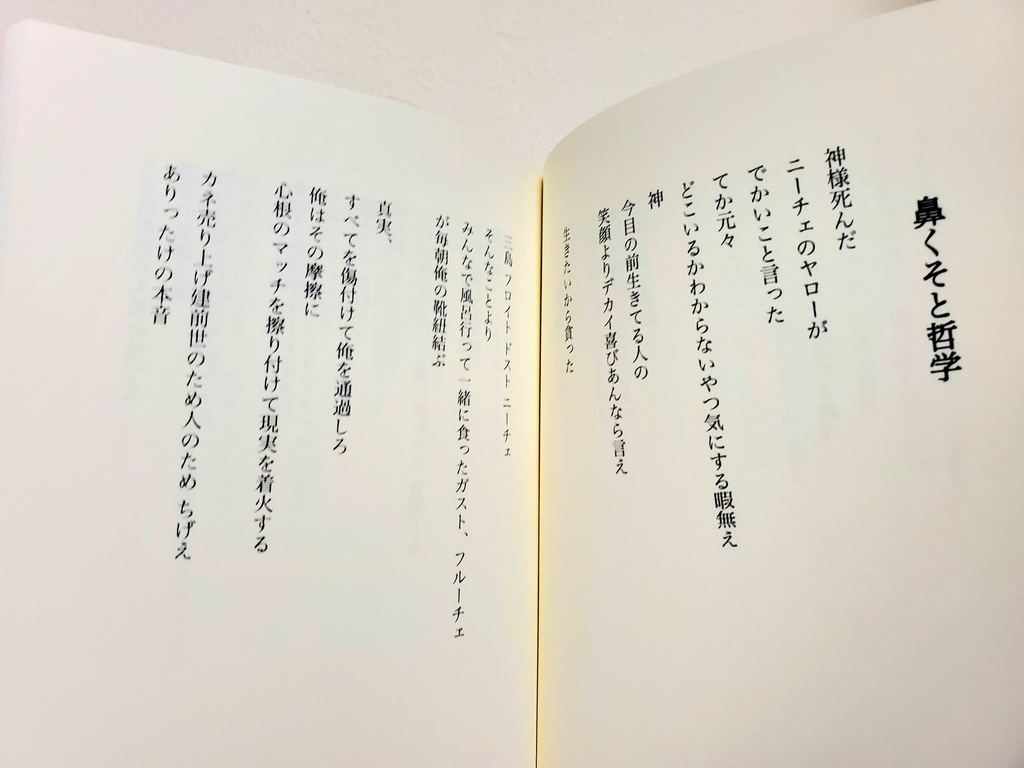 鼻くそと哲学
神様死んだ
ニーチェのヤローが
でかいこと言った
てか元々
どこいるかわからないやつ気にする暇無え
神
今目の前生きてる人の
笑顔よりデカイ喜びあんなら言え
生きたいから貪った
三島 フロイト ドスト ニーチェ
そんなことより
みんなで風呂行って一緒に食ったガスト、フルーチェ
が毎朝俺の靴紐結ぶ
真実、
すべてを傷付けて俺を通過しろ
俺はその摩擦に
心根のマッチを擦り付けて現実を着火する
カネ売り上げ建前世のため人のため ちげえ
ありったけの本音